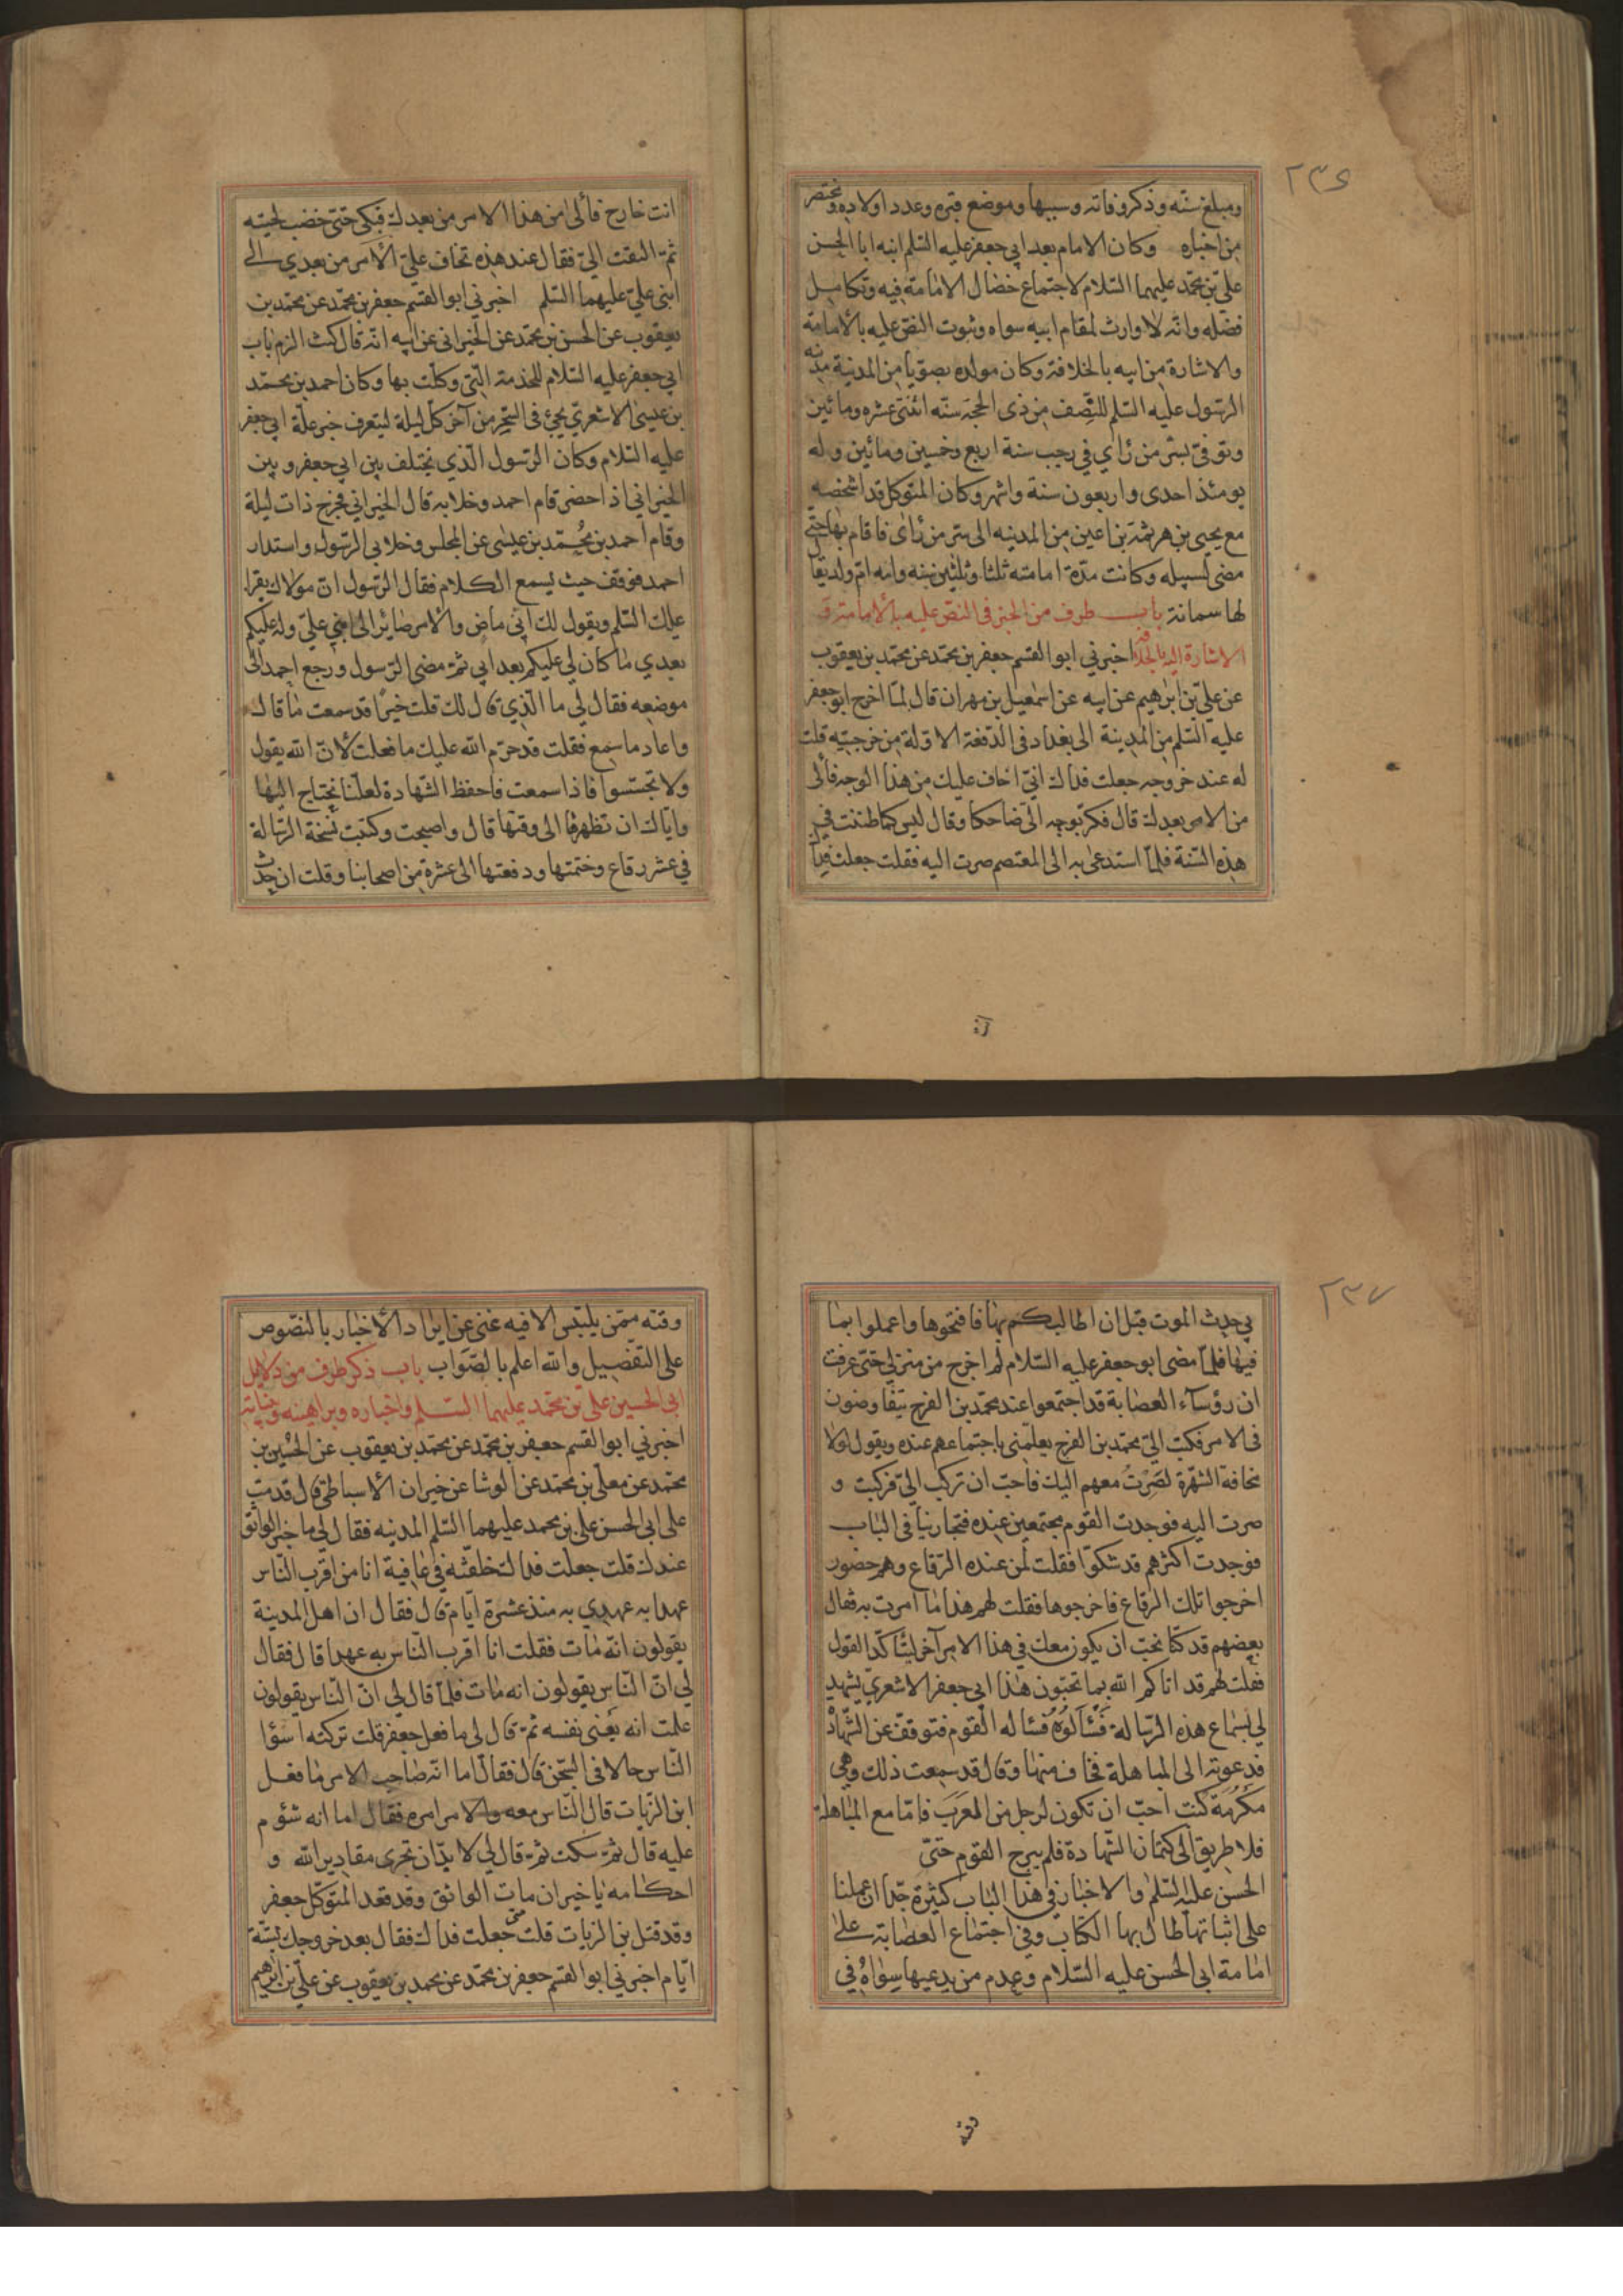 ٢٣٦
ومبلغ سنّه وذكر وفاته وسببها وموضع قبره وعدد اولاده ومختصر
من اخباره وكان الامام بعد ابي جعفر عليه السّلم ابنه ابا الحسن
عليّ بن محمّد عليهما السّلام لاجتماع خصال الامامة فيه وتكامل
فضله وانّه لا وارث لمقام ابيه سواه وثبوت النصّ عليه بالامامة
والاشارة من ابيه بالخلافة وكان مولده بصوّيا من المدنية مدينه
الرسول عليه السّلم للنّصف من ذى الحجّة سنّه اثنتى عشره ومائين
وتوفىّ بسّر من رأي في رجب سنة اربع وخمسين ومائين وله
يومئذ احدى واربعون سنة واشهر وكان المتوكل قد اشخصه
مع يحيى بن هرثمة بن اعين من المدينه الى سرّ من رأى فاقام بها حتّى
مضى لسبيله وكانت مدّة امامته ثلثا وثلثين سنه وامه امّ ولد يقال
لها سمانة باب طرف من الخبر في النصّ عليه بالامامة و
الاشارة اليه بالخلافة اخبرني ابو القسم جعفر بن محمّد عن محمّد بن يعقوب
عن عليّ بن ابرهيم عن ابيه عن اسمعيل بن مهران قال لمّا اخرج ابو جعفر
عليه السّلم من المدينة الى بغداد في الدّفعة الاولة من خرجتيه قلت
له عند خروجه جعلت فداك انيّ اخاف عليك من هذا الوجه فالى
من الامر بعدك قال فكرّ بوجهه الىّ ضاحكا وقال ليس كما ظننت في
هذه السّنة فلمّا استدعى به الى المعتصم صرت اليه فقلت جعلت فداك
انت
انت خارج فالى من هذا الامر من بعدك فبكى حتىّ خضب لحيته
ثمّ التفت اليّ فقال عند هذه تخاف عليّ الأمر من بعدي الى
ابنى عليّ عليهما السّلم اخبرني ابو القسم جعفر بن محمّد عن محمّد بن
يعقوب عن الحسن بن محمّد عن الخيرانى عن ابيه انّه قال كنت الزم باب
ابي جعفر عليه السّلام للخدمة الّتى وكلت بها وكان احمد بن محمّد
بن عيسى الاشعري يجئ في السّحر من آخر كلّ ليلة ليتعرف خبر علّة ابي جعفر
عليه السّلام وكان الرّسول الّذي يختلف بين ابي جعفر وبين
الخيراني اذ احضر قام احمد وخلا به قال الخيراني فخرج ذات ليلة
وقام احمد بن محُمّد بن عيسى عن المجلس وخلا بي الرّسول واستدار
احمد فوقف حيث يسمع الكلام فقال الرّسول انّ مولاك يقرا
عليك السّلم ويقول لك انّي ماض والأمر صائر الى ابني عليّ وله عليكم
بعدي ما كان لي عليكم بعد ابي ثمّ مضى الرّسول ورجع احمد الى
موضعه فقال لي ما الّذي قال لك قلت خيرًا قد سمعت ما قال
واعاد ما سمع فقلت قد حرّم الله عليك ما فعلت لانّ الله يقول
ولا تجسّسوا فاذا سمعت فاحفظ الشّهادة لعلّنا نحتاج اليها
وايّاك ان تظهرها الى وقتها قال واصبحت وكتبت نسخة الرّسالة
في عشر رقاع وختمتها ودفعتها الى عشرة من اصحابنا وقلت ان حدث
٢٣٧
بي حدث الموت قبل ان اطالبكم بها فافتحوها واعملوا بما
فيها فلمّا مضى ابو جعفر عليه السّلام لم اخرج من منزلي حتىّ عرفت
ان رؤسآء العصابة قد اجتمعوا عند محمّد بن الفرج يتفاوضون
في الامر فكتب اليّ محمّد بن الفرج يعلمني باجتماعهم عنده ويقول لولا
مخافة الشهرة لصِرْتُ معهم اليك فاحبّ ان تركب اليّ فركبت و
صرت اليه فوجدت القوم مجتمعين عنده فتجارينا في الباب
فوجدت اكثرهم قد شكّوا فقلت لمن عنده الرّقاع وهم حضور
اخرجوا تلك الرقاع فاخرجوها فقلت لهم هذا ما امرت به فقال
بعضهم قد كنّا نحبّ ان يكون معك في هذا الامر آخر ليتأكّد القول
فقلت لهم قد اتاكم الله بما تحبّون هذا ابي جعفر الاشعريّ يشهد
لي بسماع هذه الرّسالة فَسْألوُهُ فساله القوم فتوقّف عن الشّهادة
فدعوته الى المباهلة فخاف منها وقال قد سمعت ذلك وهي
مكرُمة كنت احبّ ان تكون لرجل من العَرَب فامّا مع المباهلة
فلا طريق الى كتمان الشّهادة فلم يبرح القوم حتىّ
الحسن عليه السّلم والاخبار في هذا الباب كثيرة جدّا ان عملنا
على اثباتها طال بها الكتاب وفي اجتماع العصابة على
امامة ابي الحسن عليه السّلام وعدم من يدعيها سِواهُ في
وقته
وقته ممّن يلتبس الا فيه غنى عن ايراد الأخبار بالنصّوص
على التفصيل والله اعلم بالصّواب باب ذكر طرف من دلايل
ابي الحسين علي بن محمّد عليهما السّلم واخباره وبراهينه وبيّناته
اخبرني ابو القسم جعفر بن محمّد عن محمّد بن يعقوب عن الحُسين بن
محمّد عن معلّى بن محمّد عن الوشا عن خيران الأسباطي قال قدمت
على ابى الحسن علي بن محمد عليهما السّلم المدينه فقال لي ما خبر الواثق
عندك قلت جعلت فداك خلّفته في عافية انا من اقرب النّاس
عهدا به عهدي به منذ عشرة ايّام قال فقال ان اهل المدينة
يقولون انّه مات فقلت انا اقرب النّاس به عهدا قال فقال
لي انّ النّاس يقولون انه مات فلمّا قال لي انّ النّاس يقولون
علمت انه يعنى نفسه ثمّ قال لي ما فعل جعفر قلت تركته اسؤا
النّاس حالا في السّجن قال فقال اما انّه صاحب الامر ما فعل
ابن الزّيات قال النّاس معه والامر امره فقال اما انه شؤم
عليه قال ثمّ سكت ثمّ قال لي لا بدّ ان تجرى مقادير الله و
احكامه يا خيران مات الواثق وقد قعد المتوكّل جعفر
وقد قتل بن الزيات قلت متى جعلت فداك فقال بعد خروجك بستّة
ايّام اخبرني ابو القسم جعفر بن محمّد عن محمد بن يعقوب عن عليّ بن ابرهيم